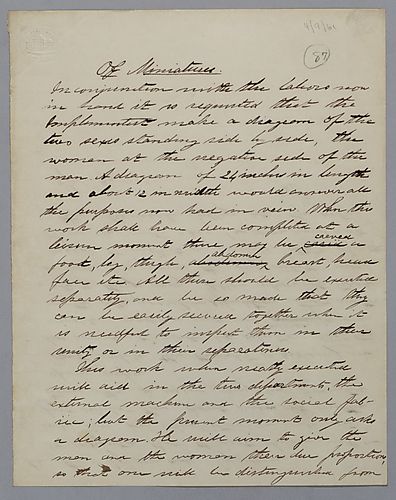 4/9/61
87
Of Miniatures.
In conjunction with the labors now
in hand it is requested that the
Implementest make a diagram of the
two sexes standing side by side, the
woman at the negative side of the
man. A diagram of 24 inches in length
and about 12 in width would answer all
the purposes now had in view. When this
work shall have been completed at a
leisure moment there may be carved a
foot, leg, thigh, abdomen breast, head
face etc. All these should be executed
separately, and be so made that they
can be easily secured together when it
is needful to inspect them in their
unity or in their separateness.
This work when neatly executed
will aid in the two departments, the
external machine and the social fab-
ric; but the present moment only asks
a diagram. He will aim to give the
man and the woman their due proportions,
so that one will be distinguished from